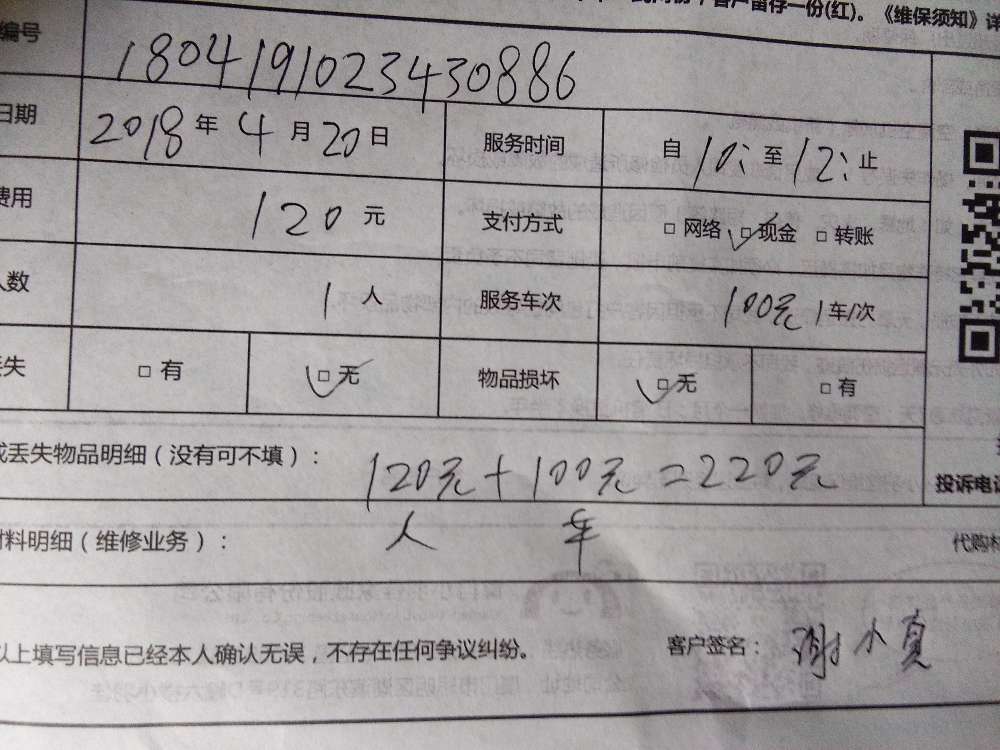 客户留存一份(红)。《维保须知》详
编号 1804191023430886
日期 2018年4月20日 服务时间 自10:至12:止
费用 120元 支付方式 □网络 ☑现金 □转账
人数 1人 服务车次 100元 1车/次
丢失 □有 ☑无 物品损坏 ☑无 □有
或丢失物品明细（没有可不填）： 120元+100元=220元
投诉电话
人 车
材料明细（维修业务）： 代购材
以上填写信息已经本人确认无误，不存在任何争议纠纷。 客户签名：谢小真